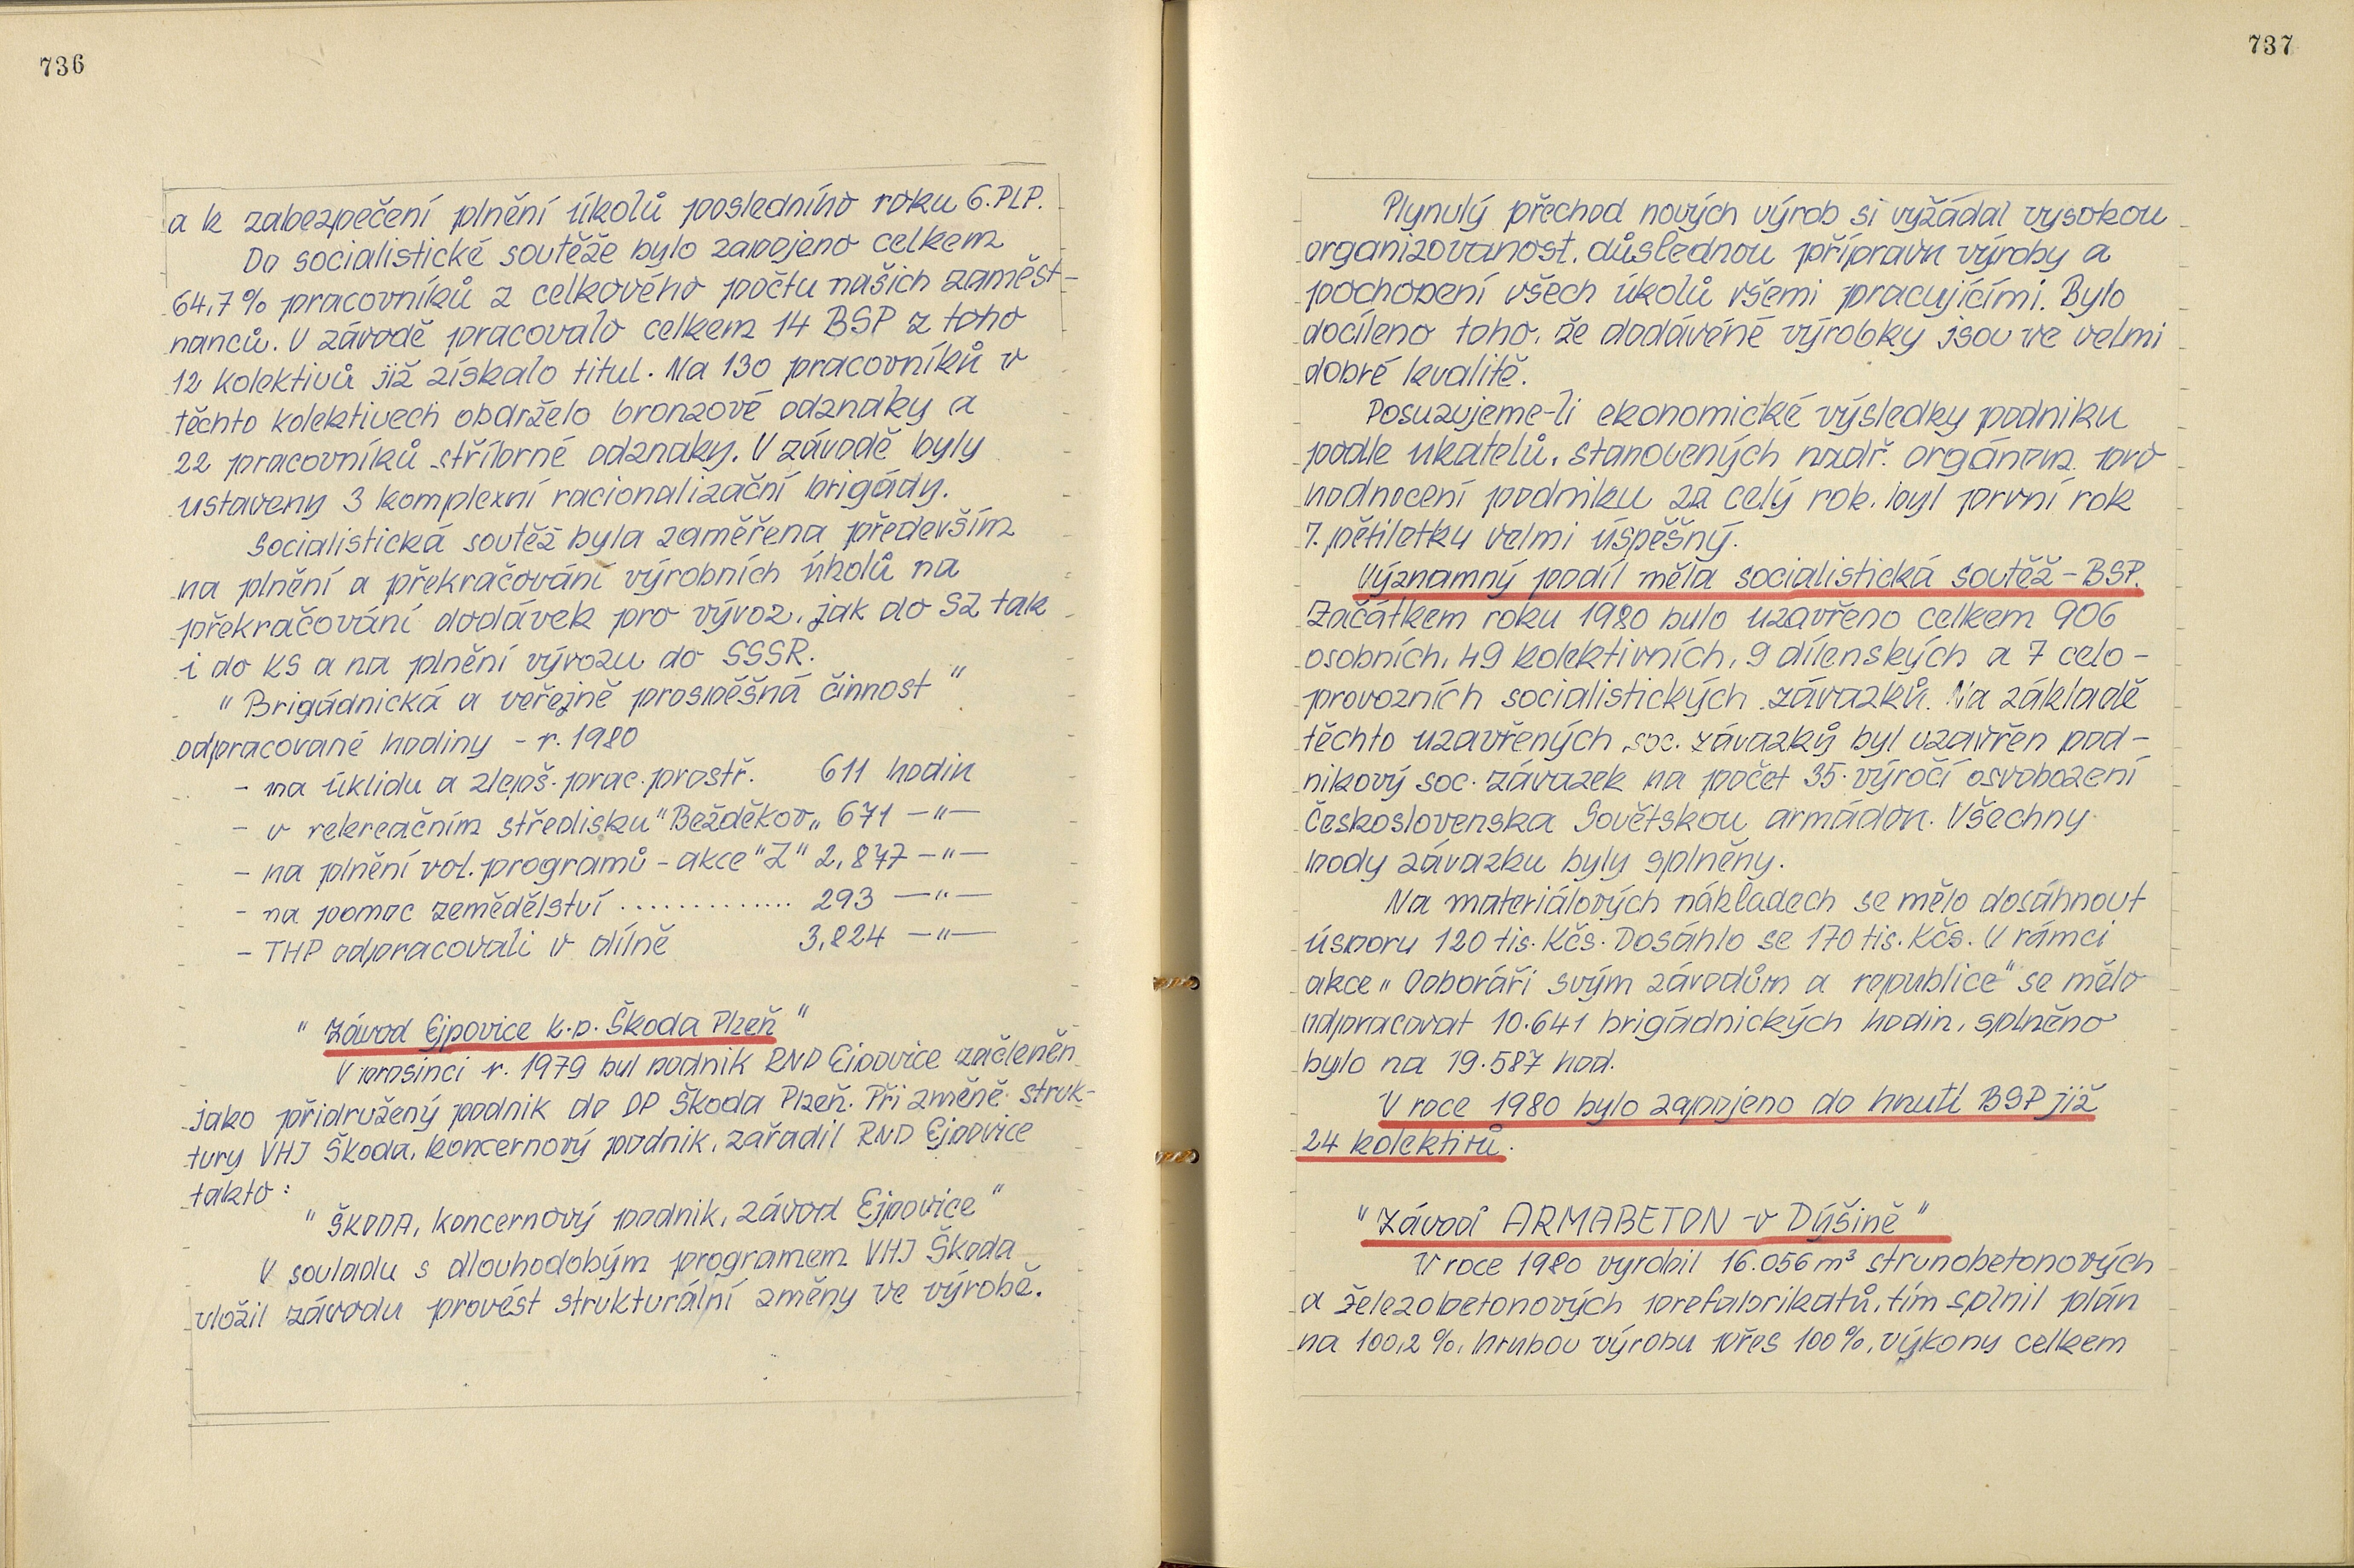 736
a k zabezpečení plnění úkolů posledního roku 6. PLP.
Do socialistické soutěže bylo zapojeno celkem
64,7 % pracovníků z celkového počtu našich zaměst-
nanců. V závodě pracovalo celkem 14 BSP z toho
12 kolektivů již získalo titul. Na 130 pracovníků v
těchto kolektivech obdrželo bronzové odznaky a
22 pracovníků stříbrné odznaky. V závodě byly
ustaveny 3 komplexní racionalizační brigády.
Socialistická soutěž byla zaměřena především
na plnění a překračování výrobních úkolů na
překračování dodávek pro vývoz, jak do SZ tak
i do KS a na plnění vývozu do SSSR.
"Brigádnická a veřejně prospěšná činnost"
odpracované hodiny - r. 1980
- na úklidu a zlepš. prac. prostř. 611 hodin
- v rekreačním středisku "Bežděkov„ 671 —"—
- na plnění vol. programů - akce "Z" 2,877 —"—
- na pomoc zemědělství .............. 293 —"—
- THP odpracovali v dílně 3,824 —"—
"Závod Ejpovice k.p. Škoda Plzeň"
V prosinci r. 1979 byl podnik RND Ejpovice začleněn
jako přidružený podnik do OP Škoda Plzeň. Při změně struk-
tury VHJ Škoda, koncernový podnik, zařadil RND Ejpovice
takto:
"ŠKODA, koncernový podnik, závod Ejpovice"
V souladu s dlouhodobým programem VHJ Škoda
uložil závodu provést strukturální změny ve výrobě.
737
Plynulý přechod nových výrob si vyžádal vysokou
organizovanost, důslednou přípravu výroby a
pochopení všech úkolů všemi pracujícími. Bylo
docíleno toho, že dodávéné výrobky jsou ve velmi
dobré kvalitě.
Posuzujeme-li ekonomické výsledky podniku
podle ukatelů, stanovených nadř. orgánem pro
hodnocení podniku za celý rok, byl první rok
7. pětiletky velmi úspěšný.
Významný podíl měla socialistická soutěž - BSP.
Začátkem roku 1980 bylo uzavřeno celkem 906
osobních, 49 kolektivních, 9 dílenských a 7 celo-
provozních socialistických závazků. Na základě
těchto uzavřených soc. závazků byl uzavřen pod-
nikový soc. závazek na počet 35. výročí osvobození
Československa Sovětskou armádou. Všechny
body závazku byly splněny.
Na materiálových nákladech se mělo dosáhnout
úsporu 120 tis. Kčs. Dosáhlo se 170 tis. Kčs. V rámci
akce „Odboráři svým závodům a republice" se mělo
odpracovat 10.641 brigádnických hodin, splněno
bylo na 19.587 hod.
V roce 1980 bylo zapojeno do hnutí BSP již
24 kolektivů.
"Závod ARMABETON - v Dýšině"
V roce 1980 vyrobil 16.056 m³ strunobetonových
a železobetonových prefabrikatů, tím splnil plán
na 100,2 %, hrubou výrobu přes 100 %, výkony celkem